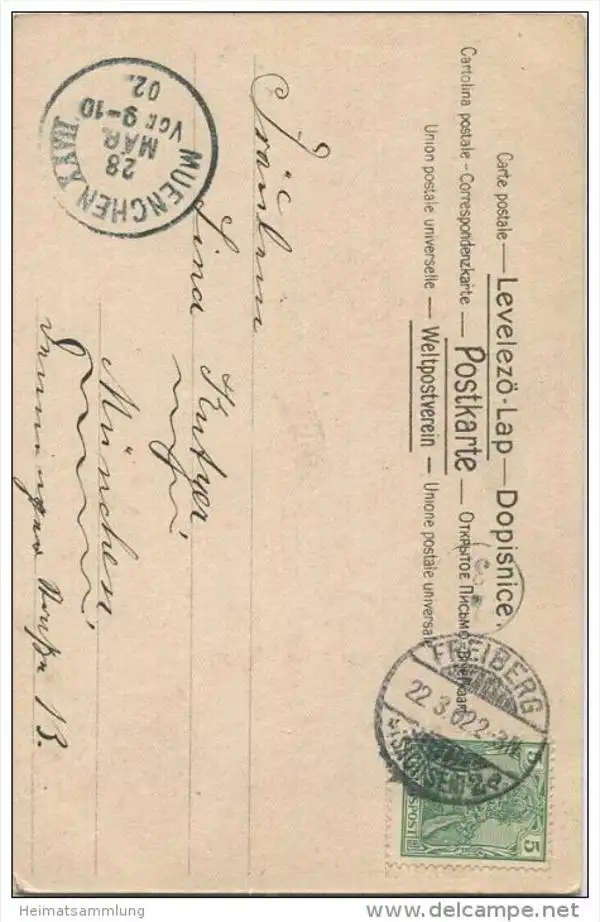 Carte postale — Levelező-Lap — Dopisnice.
Cartolina postale — Correspondenzkarte — Postkarte — Открытое Письмо —
Union postale universelle — Weltpostverein — Unione postale universale
FREIBERG
22.3.02 2-3N.
(SACHSEN) 2a
5 5
MUENCHEN
28
MAR
Vor 9-10
02.
Fräulein
Lina
München
13.
Heimatsammlung
www.delcampe.net